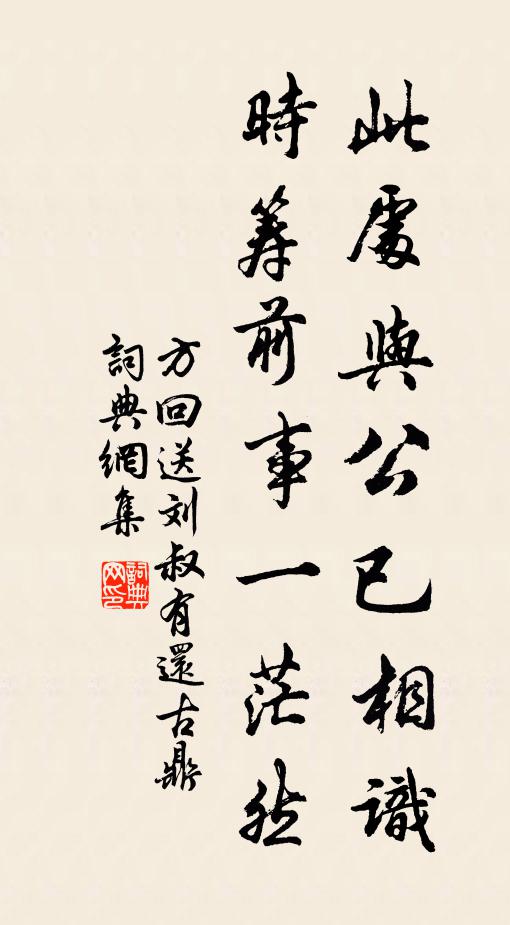 此處與公已相識
時筭前事一茫然
方回送刘叔有還古鼎
詞典網集
詞典网印